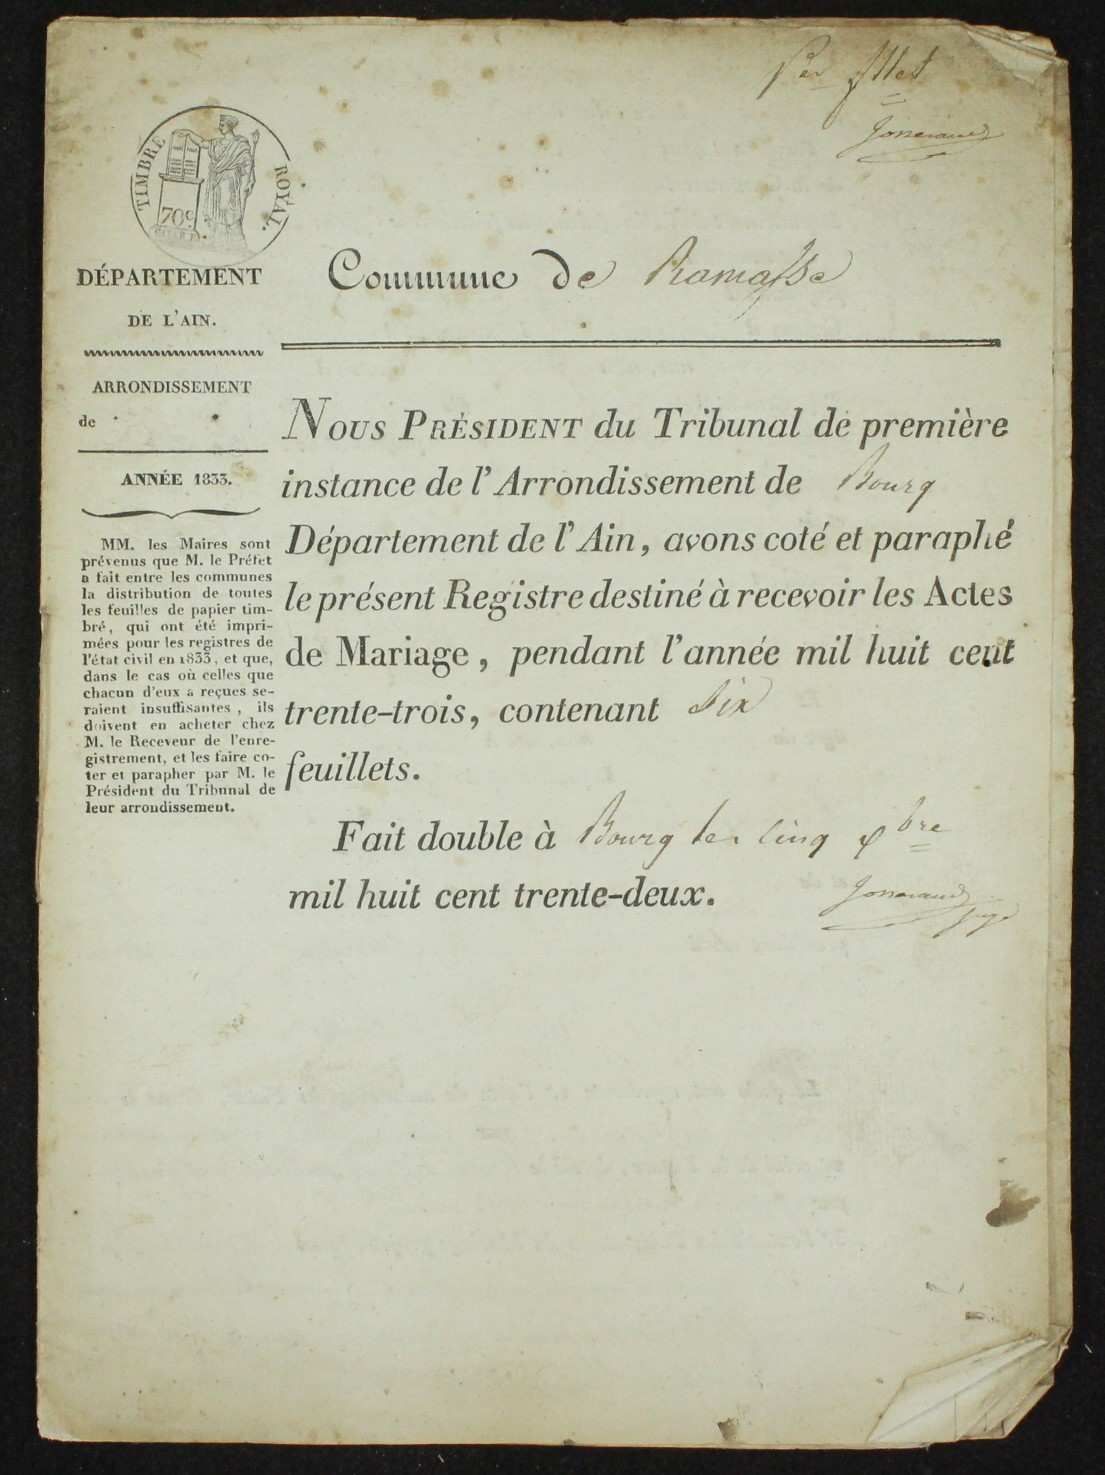 Per fllet
Josserand
TIMBRE ROYAL.
70c
DÉPARTEMENT
DE L'AIN.
ARRONDISSEMENT
de
ANNÉE 1833.
MM. les Maires sont
prévenus que M. le Préfet
a fait entre les communes
la distribution de toutes
les feuilles de papier tim-
bré, qui ont été impri-
mées pour les registres de
l'état civil en 1833, et que,
dans le cas où celles que
chacun d'eux a reçues se-
raient insuffisantes, ils
doivent en acheter chez
M. le Receveur de l'enre-
gistrement, et les faire co-
ter et parapher par M. le
Président du Tribunal de
leur arrondissement.
Commune de Ramasse
NOUS PRÉSIDENT du Tribunal de première
instance de l'Arrondissement de Bourg
Département de l'Ain, avons coté et paraphé
le présent Registre destiné à recevoir les Actes
de Mariage, pendant l'année mil huit cent
trente-trois, contenant Six
feuillets.
Fait double à Bourg le cinq xbre
mil huit cent trente-deux.
Josserand
juge